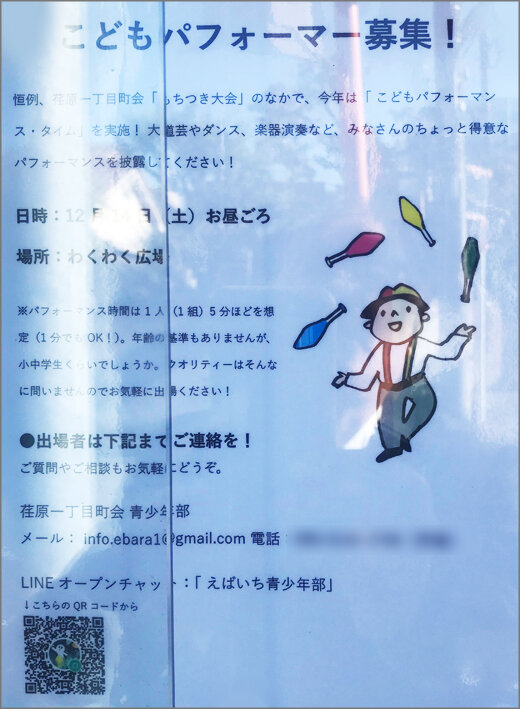 こどもパフォーマー募集！
恒例、荏原一丁目町会「もちつき大会」のなかで、今年は「こどもパフォーマン
ス・タイム」を実施！大道芸やダンス、楽器演奏など、みなさんのちょっと得意な
パフォーマンスを披露してください！
日時：12月14日（土）お昼ごろ
場所：わくわく広場
※パフォーマンス時間は１人（1組）５分ほどを想
定（1分でもOK！）。年齢の基準もありませんが、
小中学生くらいでしょうか。クオリティーはそんな
に問いませんのでお気軽に出場ください！
●出場者は下記までご連絡を！
ご質問やご相談もお気軽にどうぞ。
荏原一丁目町会 青少年部
メール： info.ebara1@gmail.com 電話：
LINE オープンチャット：「えばいち青少年部」
↓こちらのQRコードから